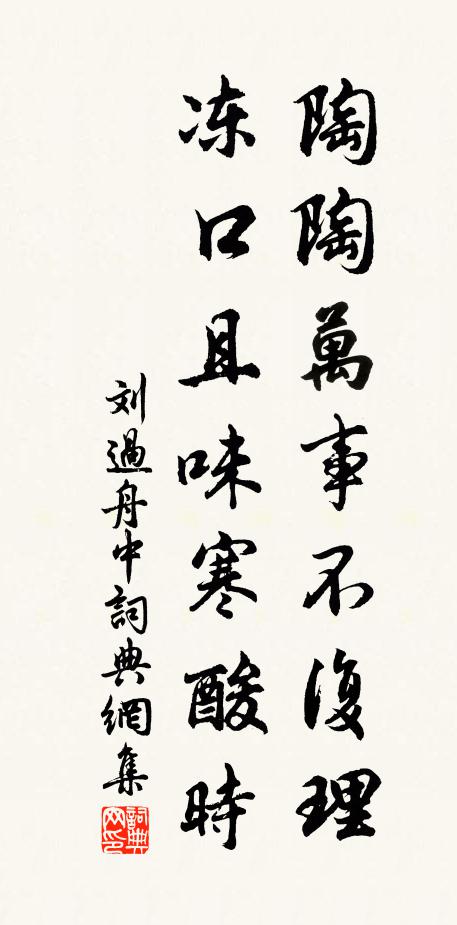 陶陶萬事不復理
冻口且味寒酸時
刘過舟中詞典網集
詞典网印